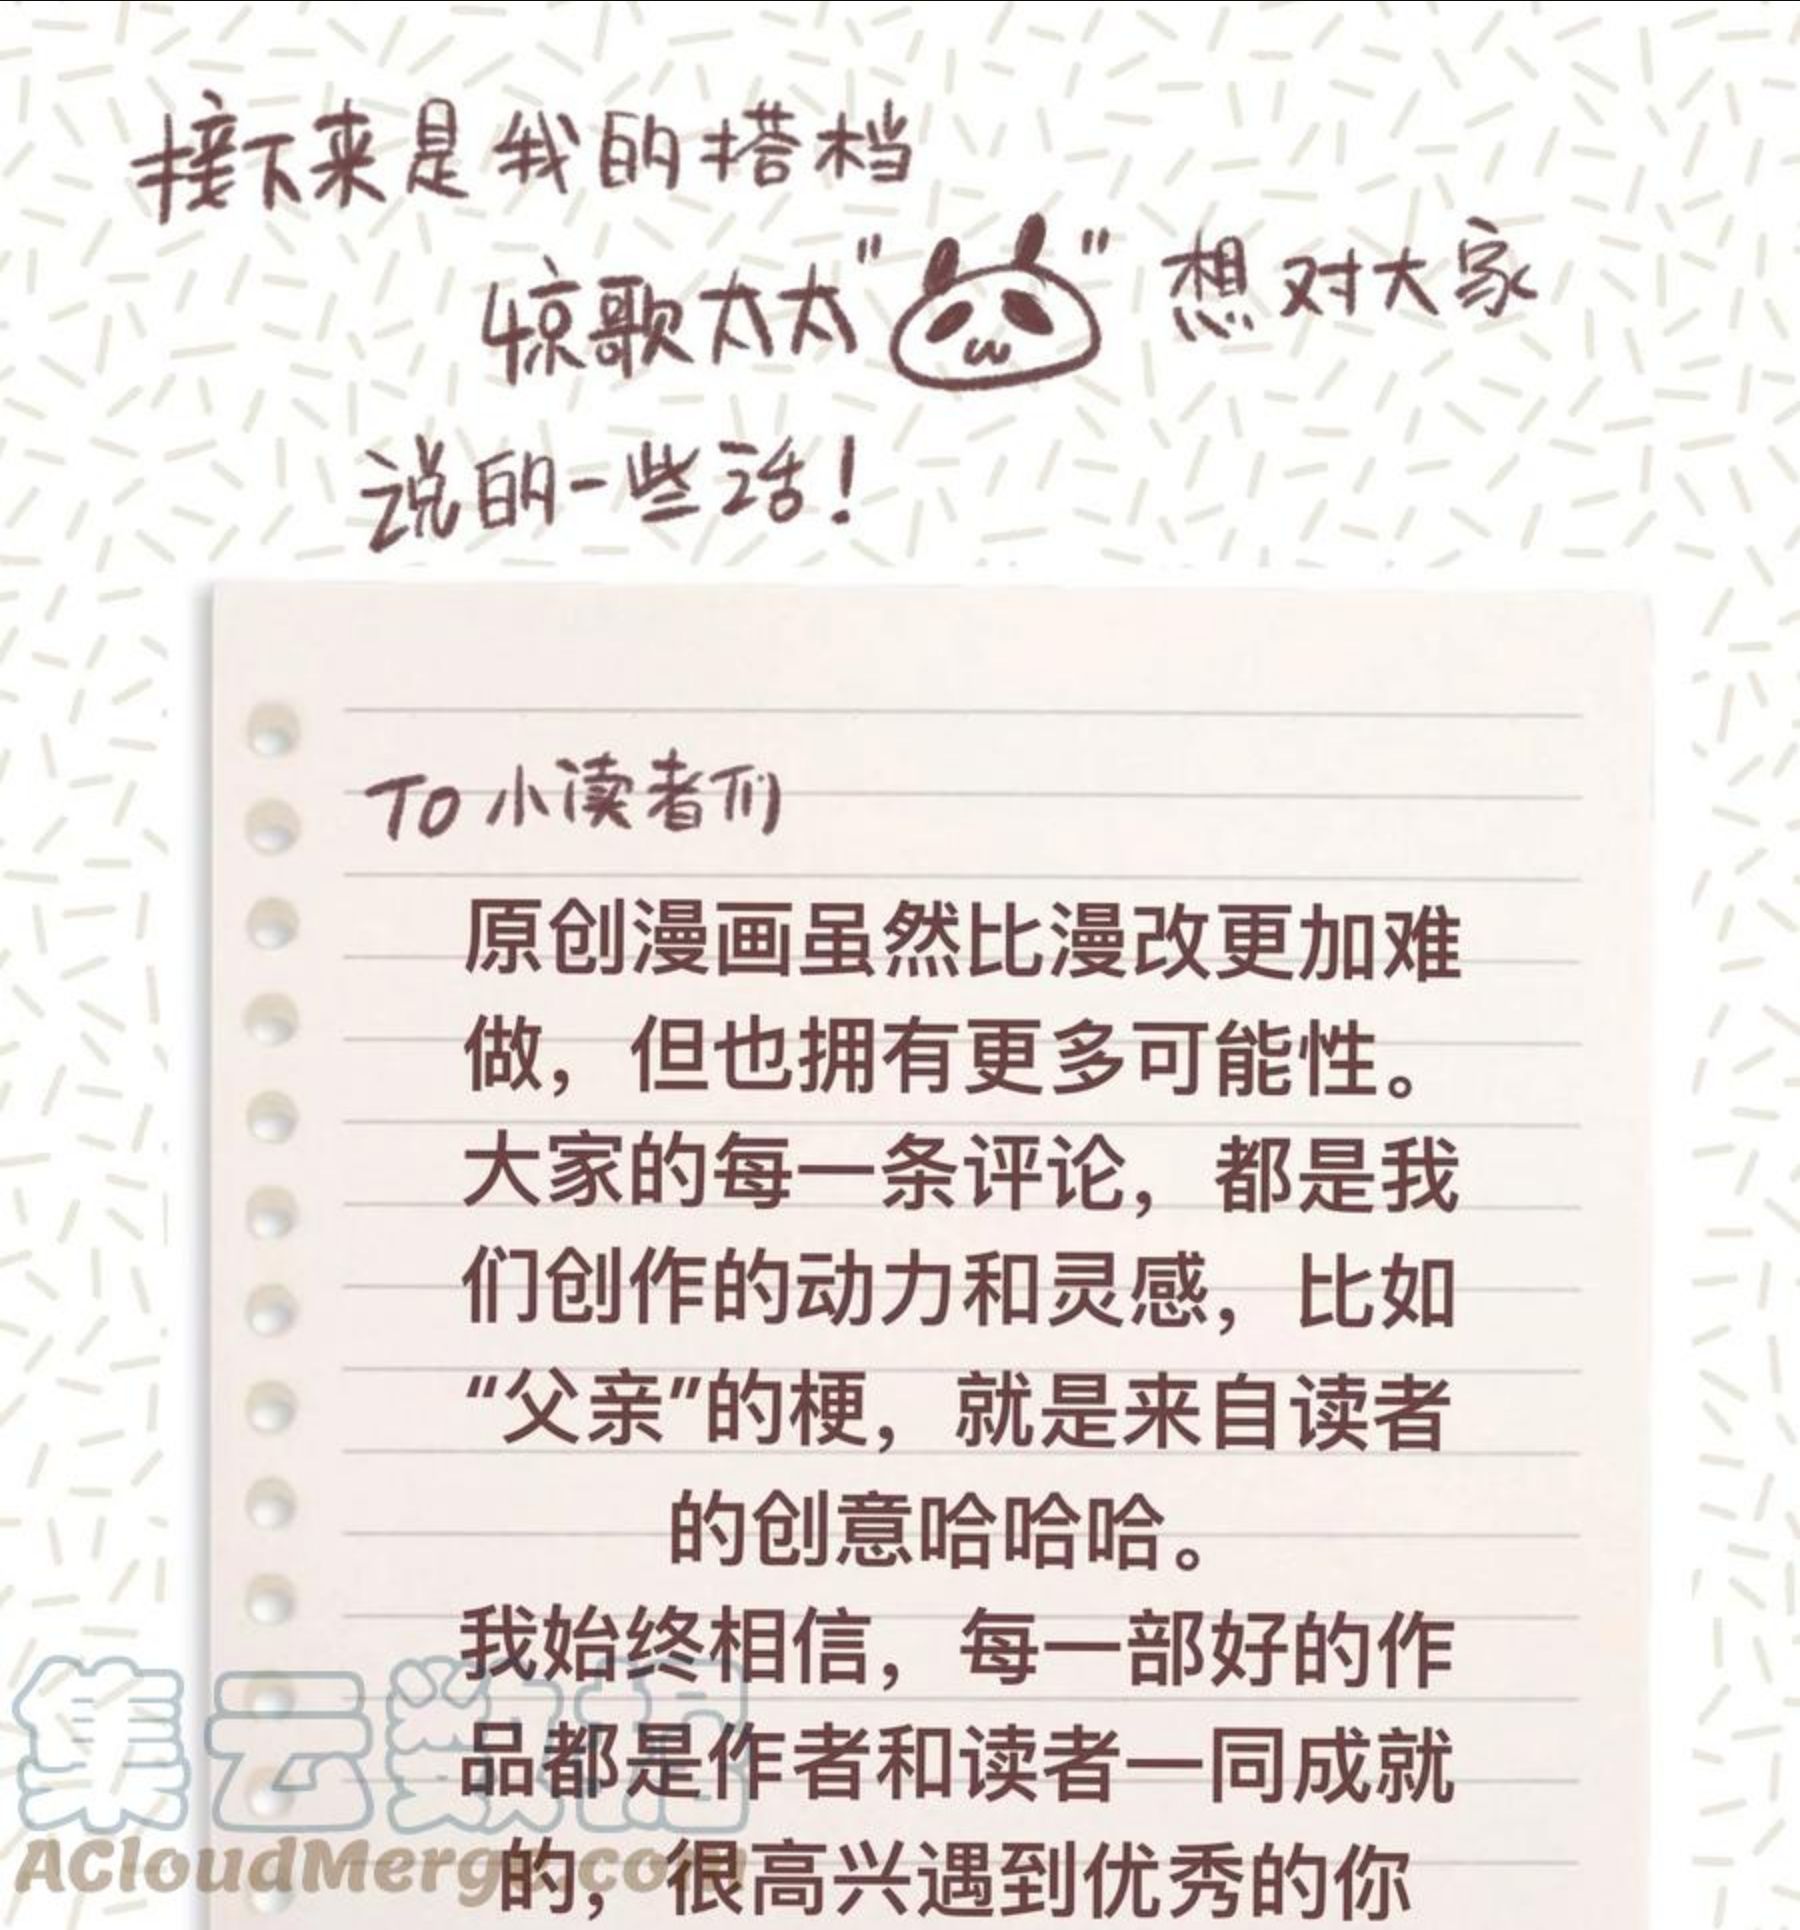 接下来是我的搭档
惊歌太太" "想对大家
说的一些话！
TO 小读者们
原创漫画虽然比漫改更加难
做，但也拥有更多可能性。
大家的每一条评论，都是我
们创作的动力和灵感，比如
“父亲”的梗，就是来自读者
的创意哈哈哈。
我始终相信，每一部好的作
品都是作者和读者一同成就
的，很高兴遇到优秀的你
集云数据
ACloudMerge.com